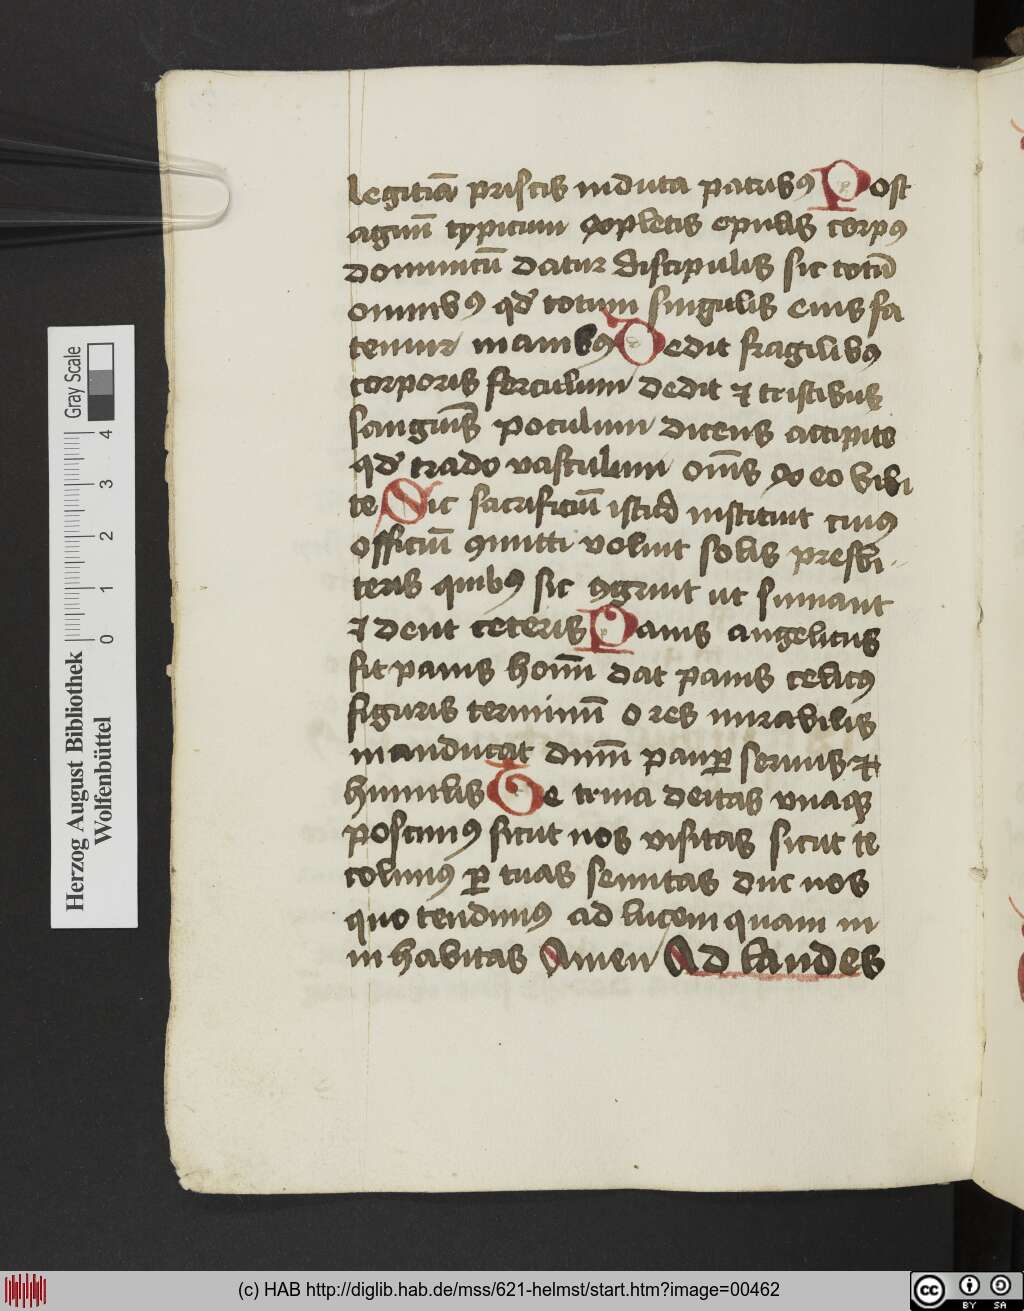 legitīā priscis induta patribꝰ Post
agnū typicum expletis epulis corpꝰ
dominicū datur discipulis sic totū
omnibꝰ qd̕ totum singulis eius fa
temur manibꝰ Dedit fragilibꝰ
corporis ferculum dedit ⁊ tristibus
sanguīs poculum dicens accipite
qd̕ trado vasculum om̄s ex eo bibi
te Sic sacrificiū istud instituit cuiuꝰ
officiū ꝯmitti voluit solis presbi
teris quibꝰ sic ꝯgruit ut sumant
⁊ dent ceteris Panis angelicus
fit panis hoīm dat panis celicꝰ
figuris terminū o res mirabilis
manducat dn̄m paup̲ seruus ⁊
humilis Te trina deitas vnaqꝫ
poscimꝰ sicut nos visitas sicut te
colimꝰ ꝑ tuas semitas duc nos
quo tendimꝰ ad lucem quam in
in habitas Amen Ad laudes
Herzog August Bibliothek
Wolfenbüttel
Gray Scale
0 1 2 3 4
(c) HAB http://diglib.hab.de/mss/621-helmst/start.htm?image=00462
cc BY SA